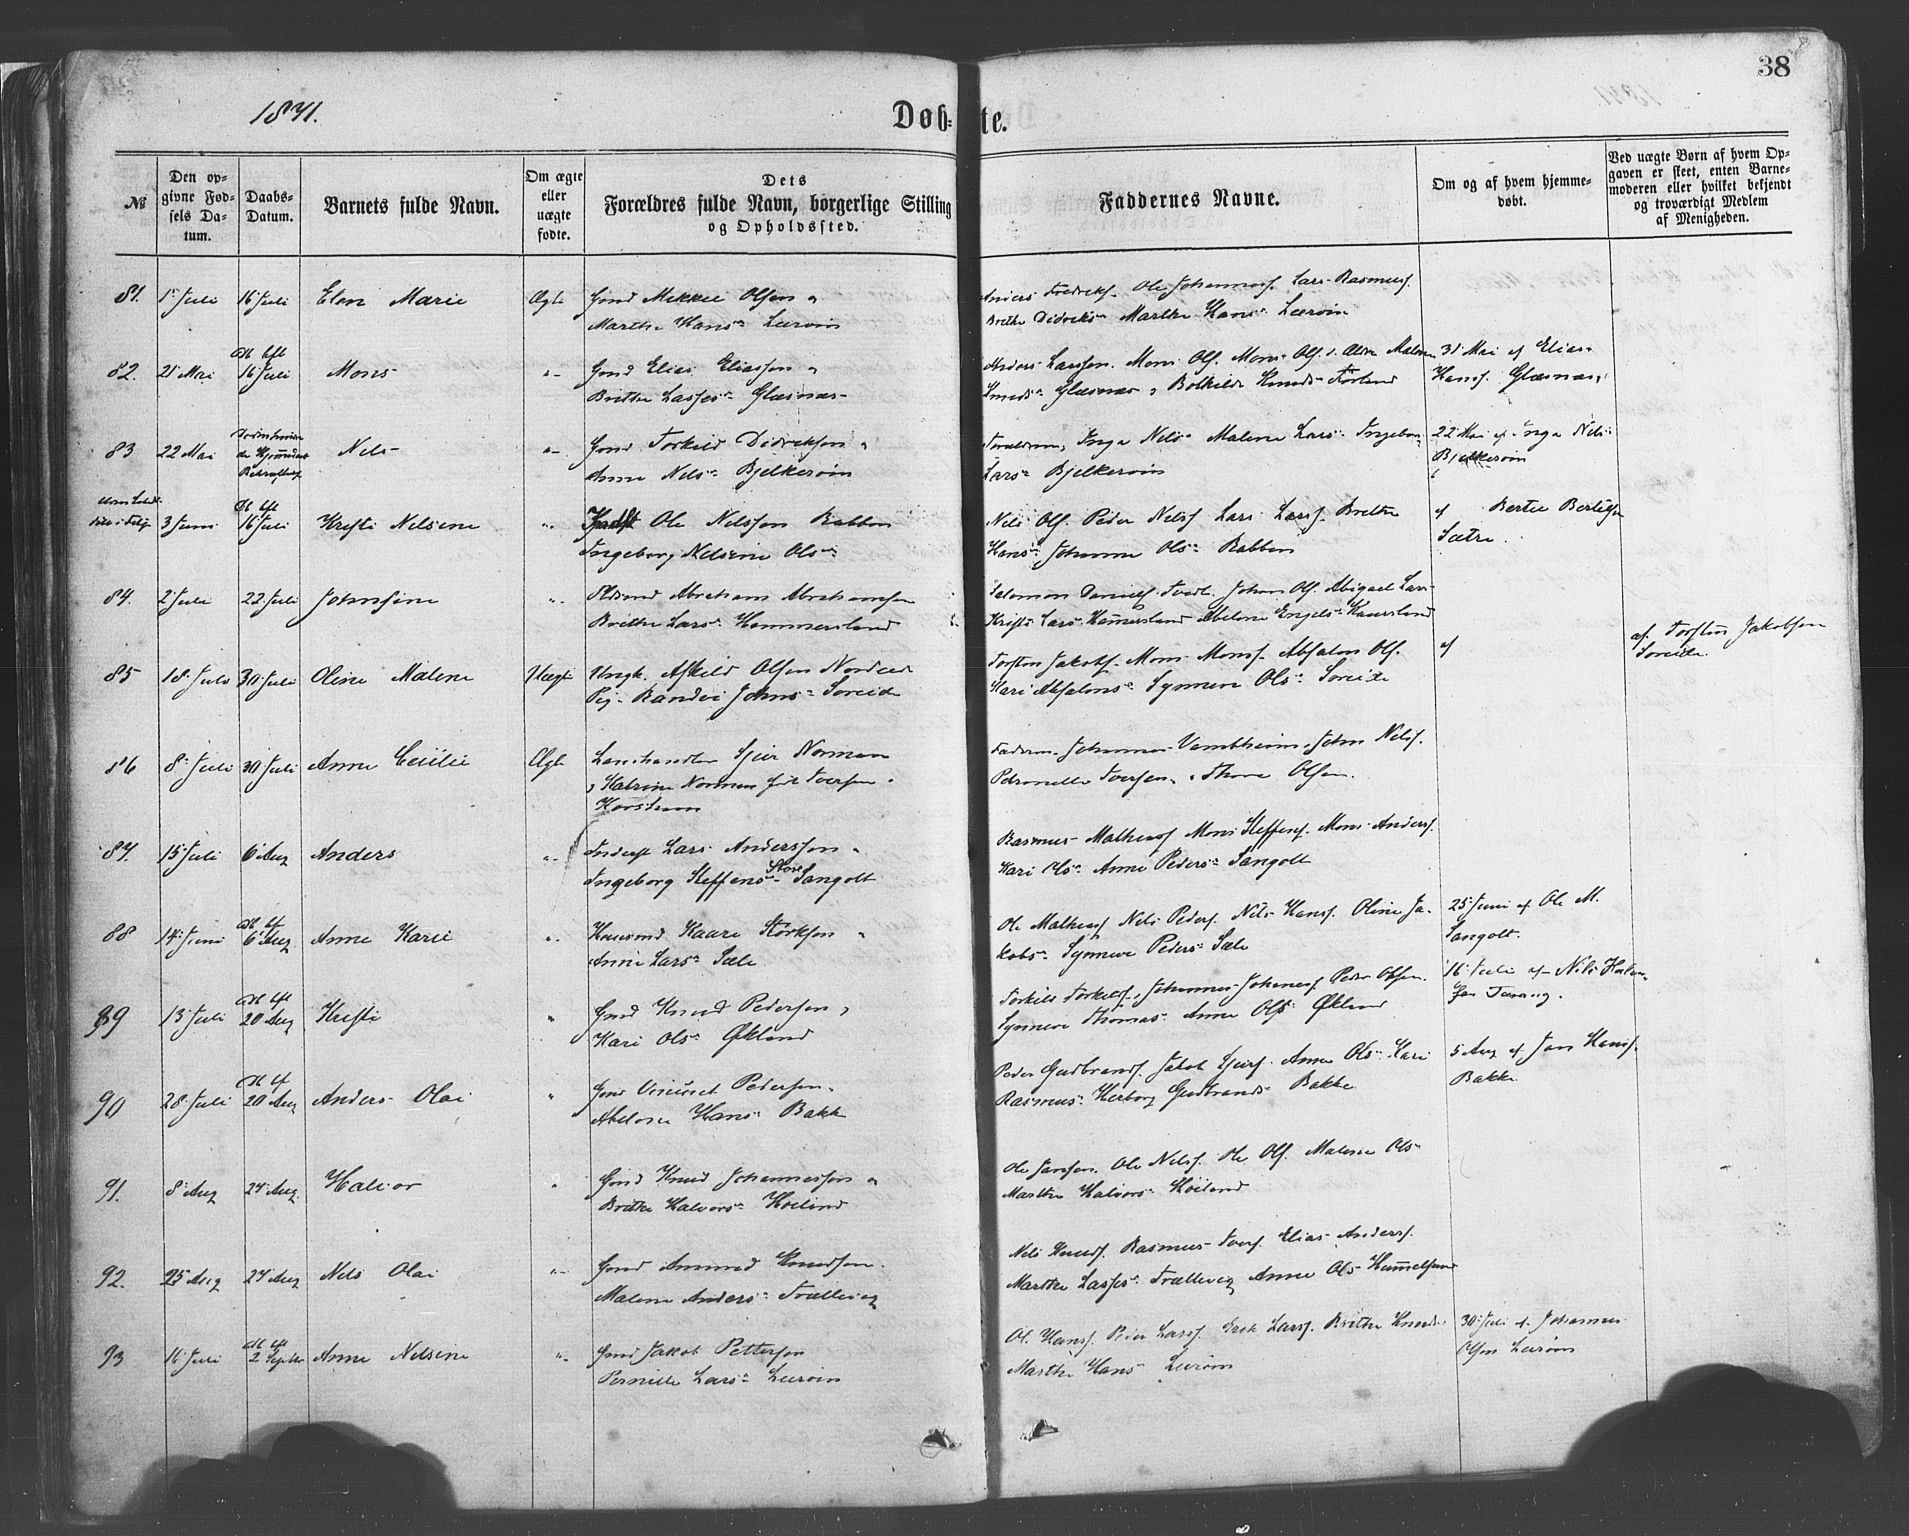 38
1871.
Døb-te.
№
Den opgivne Fødsels Datum.
Daabs-Datum.
Barnets fulde Navn.
Om ægte eller uægte fødte.
Dets Forældres fulde Navn, borgerlige Stilling og Opholdssted.
Faddernes Navne.
Om og af hvem hjemmedøbt.
Ved uægte Børn af hvem Opgaven er skeet, enten Barnemoderen eller hvilket bekjendt og troværdigt Medlem af Menigheden.
81. 1 Juli 16 Juli Elen Marie Ægte Gmd Mikkel Olsen
Marthe Hans Leerøin
Ole Johannes. Lars Rasmus.
Brithe Didriks Marthe Hans Leerøin
82. 21 Mai 16 Juli Mons Gmd Elias Eliassen
Brithe Lasses Glæsnæs
Anders Larssen. Mons Ols. Mons Ols.
Glæsnæs Bothilde Knuds
31 Mai af Elias
Hans. Glæsnæs
83 22 Mai Nils Gmd Torkild Didriksen
Anne Nels Bjelkerøin
Inga Nels Malene Lars Ingebor
Lars Bjelkerøin
22 Mai af Inga Nels
Bjelkerøin
3 Juni 16 Juli Kristi Nelsine Ole Nelssen Rabben
Ingeborg Nelsine Ols
Nels Ols. Peder Nels. Lars Lars. Brithe
Hans Johanne Ols Rabben
af Bertel Bertelsen
Sætre.
84. 2 Juli 22 Juli Johnsine Abraham Abrahamsen
Brithe Lars Hammersland
Salomon Daniels. Johan Ols. Abigael Lars
Kristi Lars Hammersland Abelone Engels
85 18 Juli 30 Juli Oline Malene Uægte Ungk. Askild Olsen
Pig. Randvei Johns Søreide
Torsten Jakobs. Mons Mons. Absalon Ols.
Kari Absalons Synneve Ols Søreide
af
af Torsten Jakobsen
Søreide
86 8 Juli 30 Juli Anne Cecilie Ægte Landhandler Sjur Norman
Katrine Norman født Iversen
Faderen. Johannes John Nels.
Petronelle Iversen. Thore Olsen.
87. 15 Juli 6 Aug Anders Lars Anderssen
Ingeborg Steffens Store Sangolt
Rasmus Mathias. Mons Steffens. Mons Anders.
Kari Ols Anne Peders Sangolt
88 14 Juni 6 Aug Anne Karie Husmd Kaare Størksen
Anne Lars Sæle
Ole Mathias. Nels Peders. Nils Hans. Oline Ja-
kobs Synneve Peders Sæle
25 Juni af Ole M.
Sangolt.
89 13 Juli 20 Aug Kristi Gmd Knud Pedersen
Kari Ols Økland
Torkild Torkilds. Johannes Johannes. Peder Olsen.
Synneve Thomas Anne Ols Økland
16 Juli af Nils
90 28 Juli 20 Aug Anders Olai Gmd Vincent Pedersen
Abelone Hans Bakk
Peder Gudbrands. Jakob Sjurs. Anne Ols Kari
Rasmus Herborg Gudbrands Bakke
5 Aug af Jan Hans.
Bakke
91. 8 Aug 24 Aug Halvor Gmd Knud Johannessen
Brithe Halvors Høiland
Ole Jansen. Ole Nels. Ole Ols. Malene Ols
Marthe Halvors Høiland
92. 25 Aug 24 Aug Nels Olai Gmd Amund Knudsen
Malene Anders Trællevig
Nels Knuds. Rasmus Ivers. Elias Anders.
Marthe Lasses Trællevig Anne Ols
93 16 Juli 2 Septbr Anne Nelsene Gmd Jakob Pettersen
Pernille Lars Leerøin
Ol. Hans. Peder Lars. Erik Lars. Brithe Knuds
Marthe Hans Leerøin
30 Juli af Johannes
Olsen Leerøin